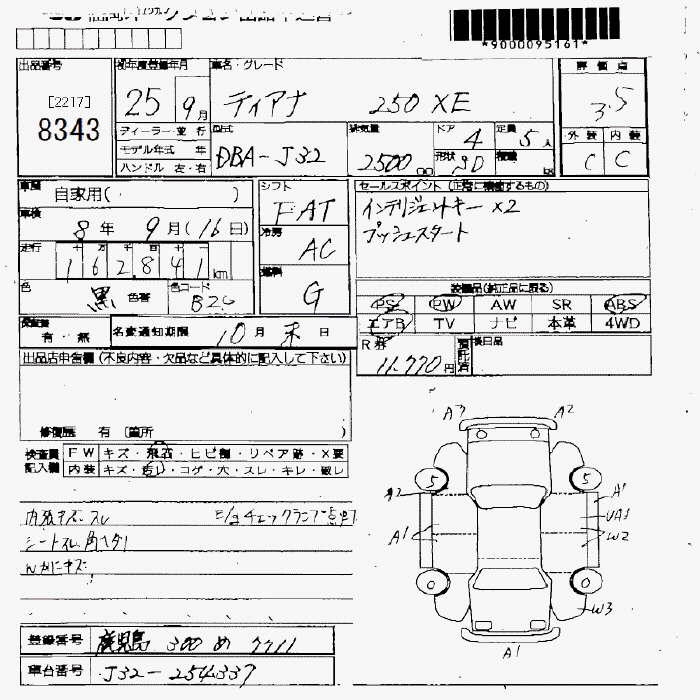 *9000095161*
出品番号 初年度登録年月 車名・グレード 評価点
[2217]
8343
25 9月 ティアナ 250 XE 3.5
ディーラー・並行 型式 排気量 ドア 定員 外装 内装
モデル年式 年 DBA-J32 2500 cc 4 5人 C C
ハンドル 左・右 形状 SD 積載
車歴 自家用( ) シフト FAT セールスポイント (正常に機能するもの)
車検 8年 9月(16日) 冷房 AC インテリジェントキー ×2
プッシュスタート
走行 162,841 km 燃料 G
色 黒 色替 色コード 装備品(純正品に限る)
PS PW AW SR ABS
エアB TV ナビ 本革 4WD
保証書 有・無 名変通知期限 10月末日 R券 11,770円 預託済 後日品
出品店申告欄(不良内容・欠品など具体的に記入して下さい)
修復歴 有 [箇所 )
検査員記入欄 FW キズ・飛石・ヒビ割・リペア跡・X要
内装 キズ・汚レ・コゲ・穴・スレ・キレ・破レ
内装キズ、スレ E/gチェックランプ点灯
シートスレ
A3 A2
5 5
A2 A1
UA1
A1 W2
0 0
W3
A1
登録番号 鹿児島 300 め 7711
車台番号 J32-254337